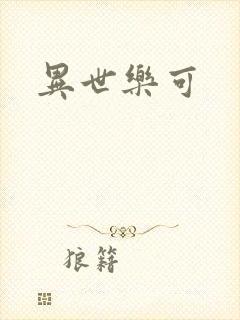 異世樂可
狼籍